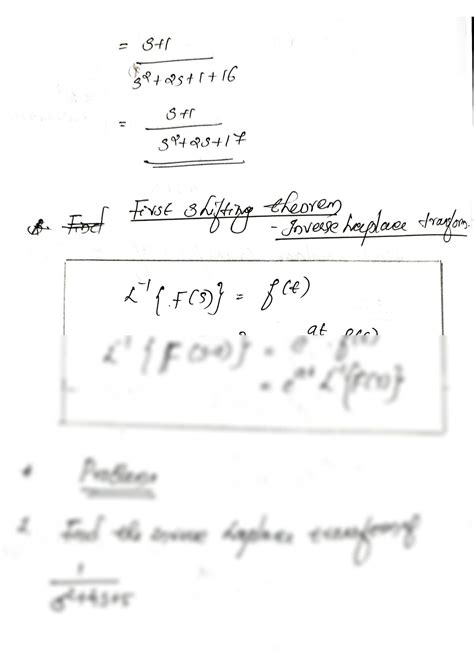 = s+1
s²+2s+1+16
= s+1
s²+2s+17
First shifting theorem
- Inverse Laplace transfom.
L⁻¹{F(s)} = f(t)
L⁻¹{F(s-a)} = e^at f(t)
= e^at L⁻¹{F(s)}
Problem
Find the inverse Laplace transform of
1
s²+4s+5